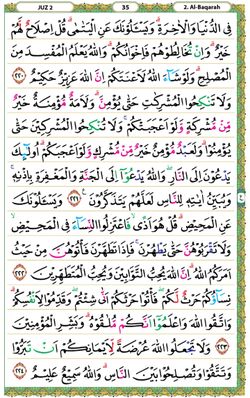 JUZ 2 35 2. Al-Baqarah
فِي الدُّنْيَا وَالْآخِرَةِ ۗ وَيَسْأَلُونَكَ عَنِ الْيَتَامَىٰ ۖ قُلْ إِصْلَاحٌ لَّهُمْ
خَيْرٌ ۖ وَإِن تُخَالِطُوهُمْ فَإِخْوَانُكُمْ ۚ وَاللَّهُ يَعْلَمُ الْمُفْسِدَ مِنَ
الْمُصْلِحِ ۚ وَلَوْ شَاءَ اللَّهُ لَأَعْنَتَكُمْ ۚ إِنَّ اللَّهَ عَزِيزٌ حَكِيمٌ ﴿٢٢٠﴾
وَلَا تَنكِحُوا الْمُشْرِكَاتِ حَتَّىٰ يُؤْمِنَّ ۚ وَلَأَمَةٌ مُّؤْمِنَةٌ خَيْرٌ
مِّن مُّشْرِكَةٍ وَلَوْ أَعْجَبَتْكُمْ ۗ وَلَا تُنكِحُوا الْمُشْرِكِينَ حَتَّىٰ
يُؤْمِنُوا ۚ وَلَعَبْدٌ مُّؤْمِنٌ خَيْرٌ مِّن مُّشْرِكٍ وَلَوْ أَعْجَبَكُمْ ۗ أُولَٰئِكَ
يَدْعُونَ إِلَى النَّارِ ۖ وَاللَّهُ يَدْعُو إِلَى الْجَنَّةِ وَالْمَغْفِرَةِ بِإِذْنِهِ ۖ
وَيُبَيِّنُ آيَاتِهِ لِلنَّاسِ لَعَلَّهُمْ يَتَذَكَّرُونَ ﴿٢٢١﴾ وَيَسْأَلُونَكَ
عَنِ الْمَحِيضِ ۖ قُلْ هُوَ أَذًى فَاعْتَزِلُوا النِّسَاءَ فِي الْمَحِيضِ ۖ
وَلَا تَقْرَبُوهُنَّ حَتَّىٰ يَطْهُرْنَ ۖ فَإِذَا تَطَهَّرْنَ فَأْتُوهُنَّ مِنْ حَيْثُ
أَمَرَكُمُ اللَّهُ ۚ إِنَّ اللَّهَ يُحِبُّ التَّوَّابِينَ وَيُحِبُّ الْمُتَطَهِّرِينَ ﴿٢٢٢﴾
نِسَاؤُكُمْ حَرْثٌ لَّكُمْ فَأْتُوا حَرْثَكُمْ أَنَّىٰ شِئْتُمْ ۖ وَقَدِّمُوا لِأَنفُسِكُمْ ۚ
وَاتَّقُوا اللَّهَ وَاعْلَمُوا أَنَّكُم مُّلَاقُوهُ ۗ وَبَشِّرِ الْمُؤْمِنِينَ
﴿٢٢٣﴾ وَلَا تَجْعَلُوا اللَّهَ عُرْضَةً لِّأَيْمَانِكُمْ أَن تَبَرُّوا
وَتَتَّقُوا وَتُصْلِحُوا بَيْنَ النَّاسِ ۗ وَاللَّهُ سَمِيعٌ عَلِيمٌ ﴿٢٢٤﴾